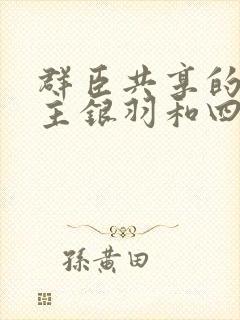 群臣共享的
主银羽和四
孫黄田